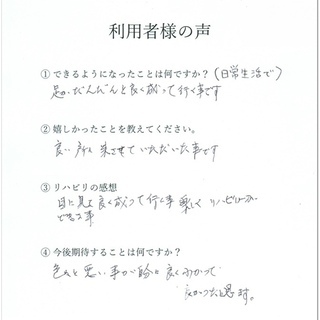 利用者様の声
①できるようになったことは何ですか？(日常生活で)
足が、だんだんと良く成って行く事です
②嬉しかったことを教えてください。
良い所に来させていただいた事です
③リハビリの感想
目に見え良く成って行く事 楽しく リハビリが
できる事
④今後期待することは何ですか？
色々と悪い事が 良く
良かったと思います。